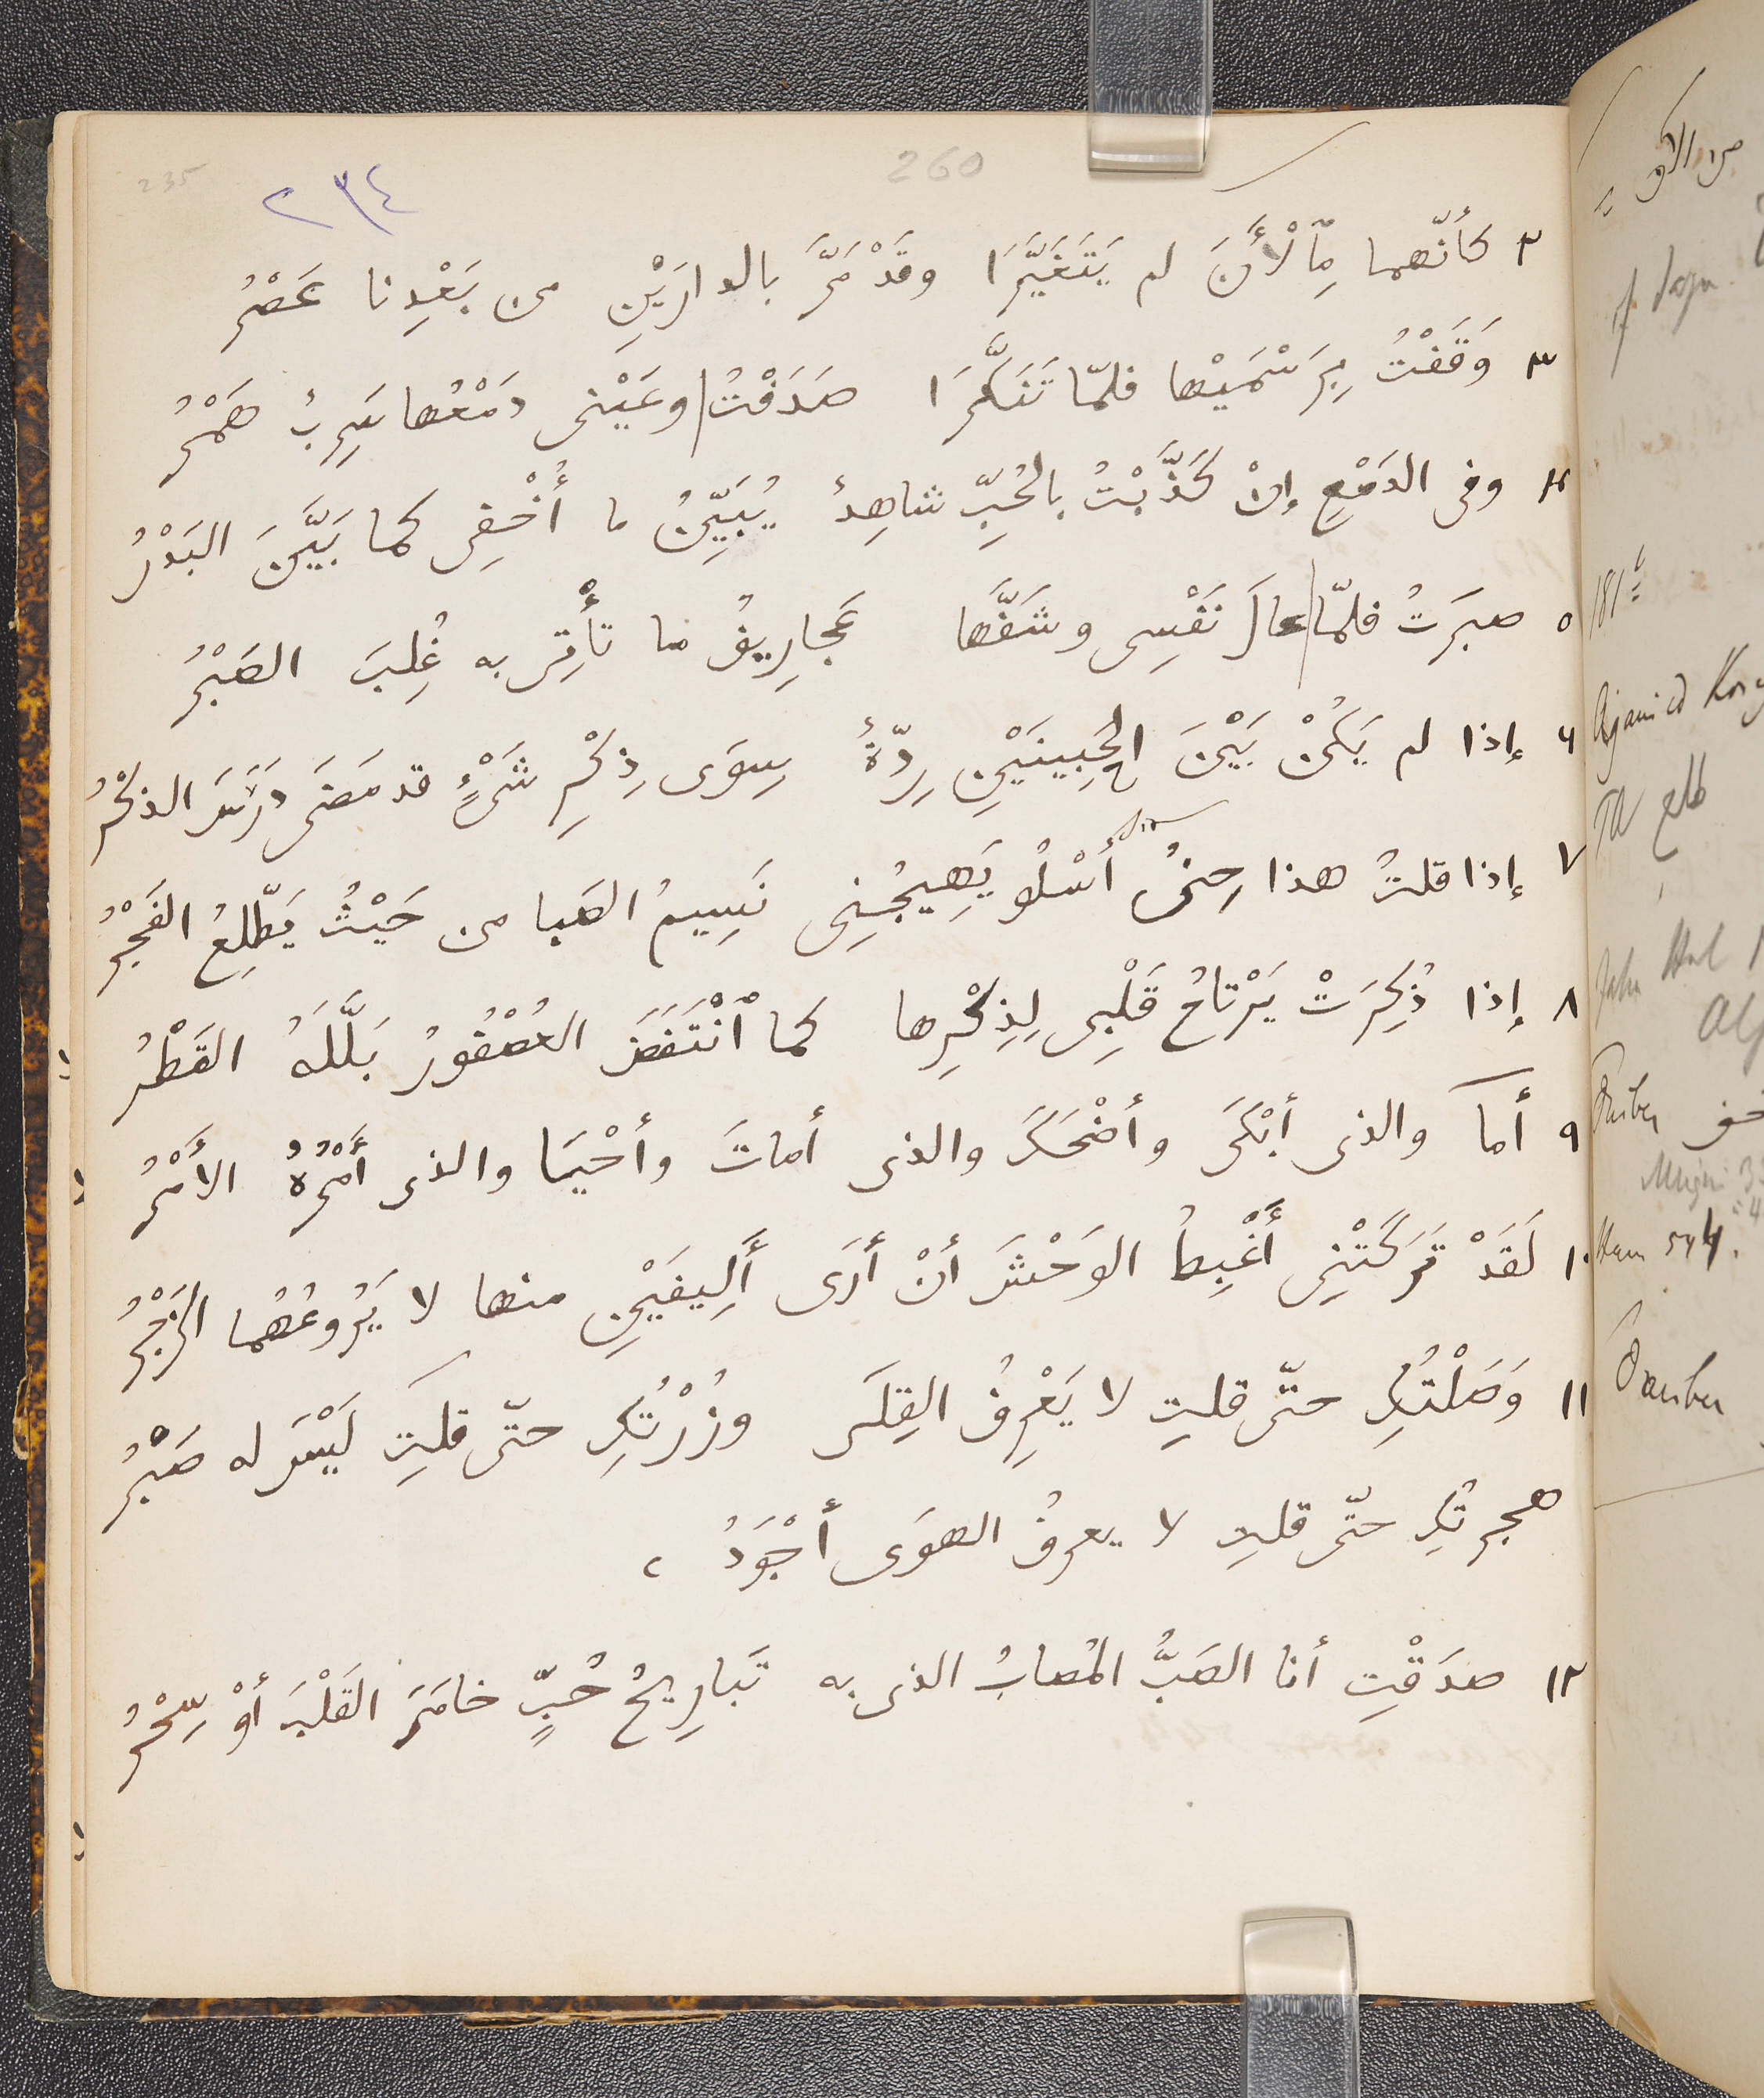 260
235
٢٣٤
٢ كأنّهما مِٱلْأَنَ لم يَتَغَيَّرَا وقَدْ مَرَّ بالدارَيْنِ من بَعْدِنا عَصْرُ
٣ وَقَفْتُ بِرَسْمَيْها فلمّا تَنَكَّرَا صَدَفْتُ وعَيْنى دَمْعُها سَرِبٌ هَمْرُ
٤ وفى الدَمْعِ إنْ كَذَّبْتُ بالحُبِّ شاهِدٌ يُبَيِّنُ ما أُخْفِى كما بَيَّنَ البَدْرُ
٥ صبَرَتُ فلمّا عالَ نَفْسِى وشَفَّها عَجارِيفُ ما تأْتِى به غُلِبَ الصَبْرُ
٦ إذا لم يَكُنْ بَيْنَ الحَبِيبَيْنِ رِدّةٌ سِوَى ذِكْرِ شَىْءٍ قد مَضَى دَرَسَ الذكْرُ
٧ إذا قلتُ هذا حِينُ أَسْلُو يَهِيجُنِى نَسِيمُ الصَبا من حَيْثُ يَطّلِعُ الفَجْرُ
٨ إذا ذُكِرَتْ يَرْتاحُ قَلْبِى لِذِكْرِها كما ٱنْتَفَضَ العُصْفُورُ بَلَّلَهُ القَطْرُ
٩ أما والذى أبْكَى وأضْحَكَ والذى أماتَ وأحْيَا والذى أَمْرُهُ الأَمْرُ
١٠ لَقَدْ تَرَكَتْنِى أَغْبِطُ الوَحْشَ أنْ أَرَى أَلِيفَيْنِ منها لا يَرُوعُهُما الزَجْرُ
١١ وَصَلْتُكِ حتّى قلتِ لا يَعْرِفُ القِلَى وزُرْتُكِ حتّى قلتِ لَيْسَ له صَبْرُ
هجرتُكِ حتّى قلتِ لا يعرفُ الهوَى أجْوَدُ ،
١٢ صدَقْتِ أنا الصَبُّ المُصابُ الذى به تَبارِيحُ حُبٍّ خامَرَ القَلْبَ أوْ سِحْرُ
181
TA طلع
Ham 544.